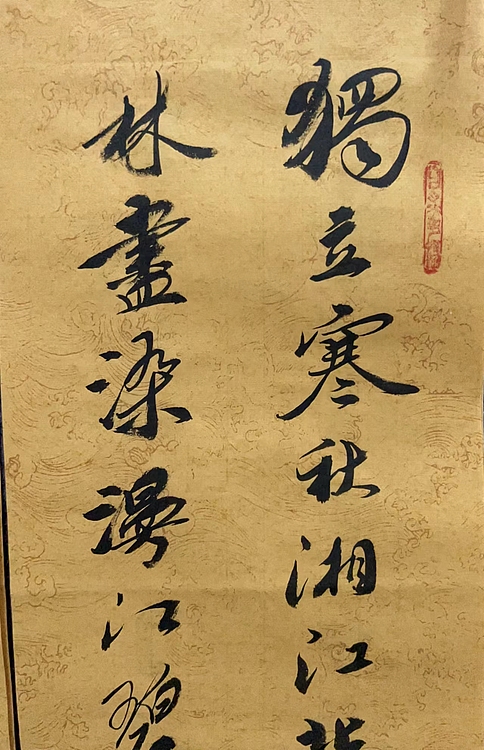 獨立寒秋湘江北
林盡染漫江碧